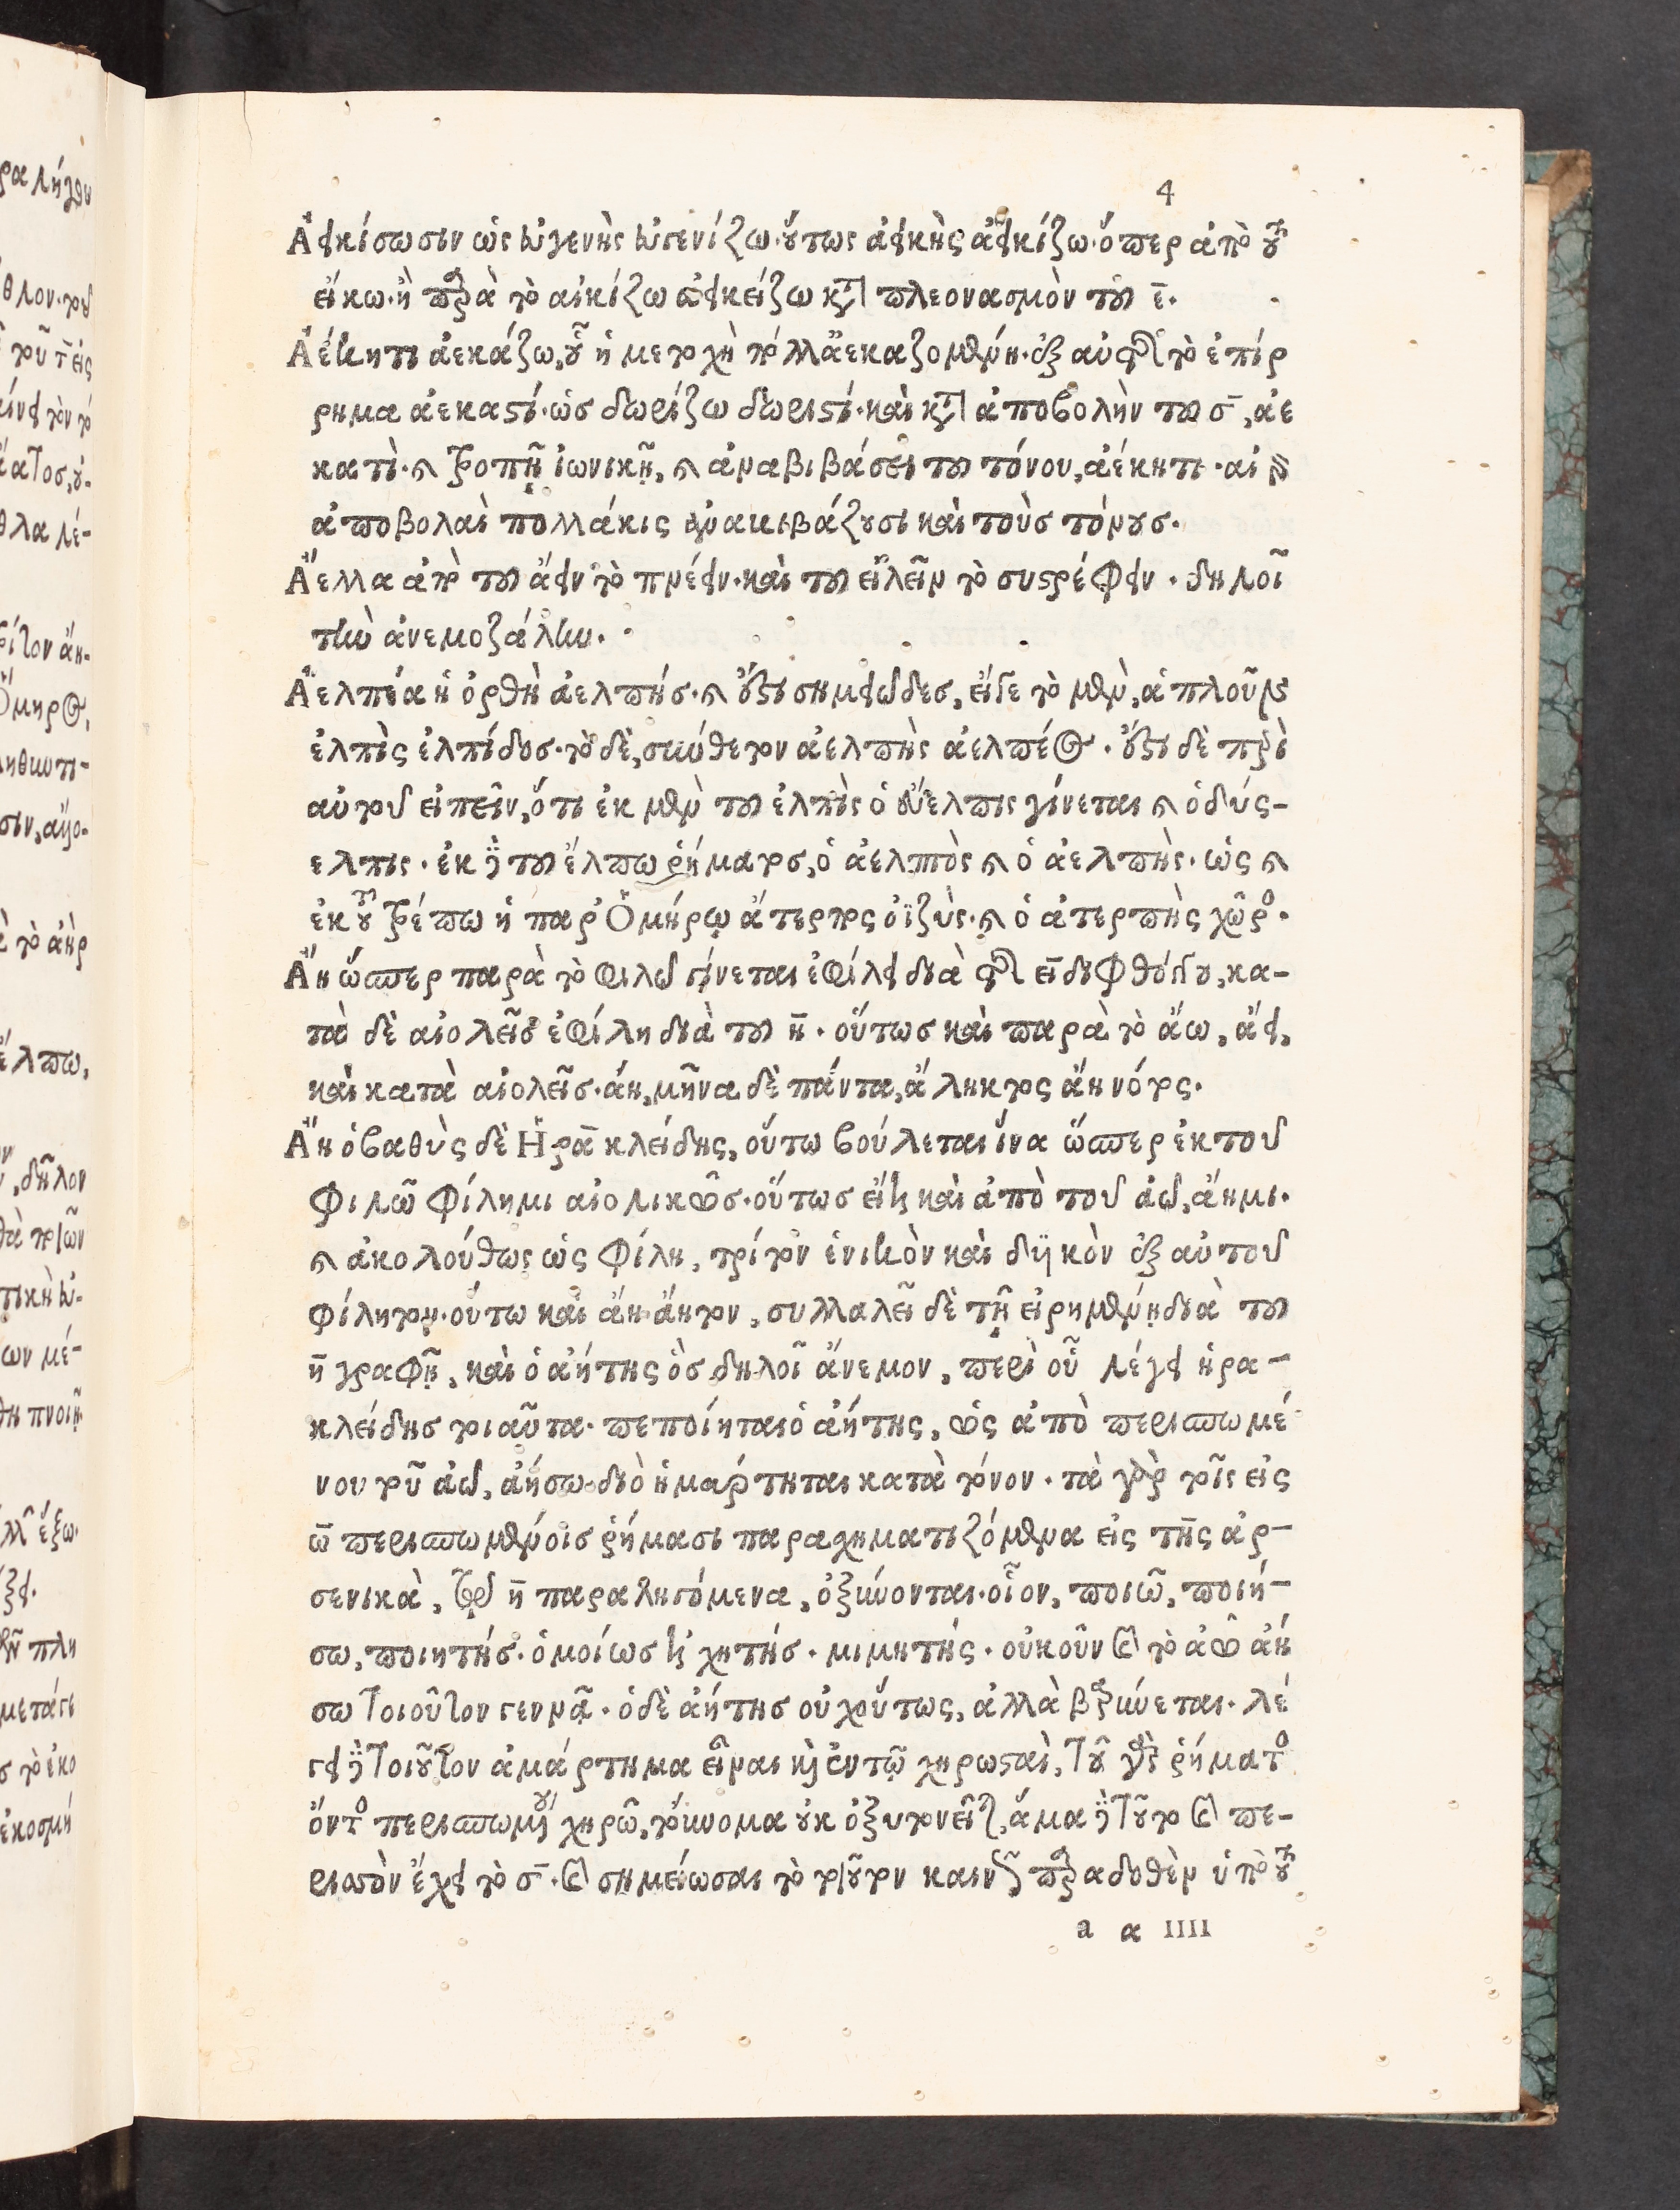 4
Ἀεικίσωσιν ὡς εὐγενὴς εὐγενίζω· οὕτως ἀεικὴς ἀεικίζω· ὅπερ ἀπὸ τοῦ
εἴκω· ἢ παρὰ τὸ αἰκίζω ἀεικείζω κατὰ πλεονασμὸν τοῦ ε̄.
Ἀέκητι ἀεκάζω, οὗ ἡ μετοχὴ πόλλ' ἀεκαζομένη· ἐξ αὐτοῦ τὸ ἐπίρ
ρημα ἀεκαστί· ὡσ δωρίζω δωριστί· καὶ κατὰ ἀποβολὴν τοῦ σ̄, ἀε
κατὶ· καὶ τροπῇ ἰωνικῇ, καὶ ἀναβιβάσει τοῦ τόνου, ἀέκητι· αἱ γὰρ
ἀποβολαὶ πολλάκις ἀναβιβάζουσι καὶ τοὺσ τόνουσ.
Ἄελλα ἀπὸ τοῦ ἄειν τὸ πνέειν· καὶ τοῦ εἰλεῖν τὸ συστρέφειν. δηλοῖ
τὴν ἀνεμοζάλην.
Ἀελπέα ἡ ὀρθὴ ἀελπήσ· καὶ ἔστι σημειῶδεσ, εἴγε τὸ μὲν, ἁπλοῦν
ἐλπὶς ἐλπίδοσ· τὸ δὲ, σύνθετον ἀελπὴς ἀελπέος. ἔστι δὲ περὶ
αὐτοῦ εἰπεῖν, ὅτι ἐκ μὲν τοῦ ἐλπὶς ὁ εὔελπις γίνεται καὶ ὁ δύσ-
ελπις. ἐκ δὲ τοῦ ἔλπω ῥήματοσ, ὁ ἀελπτὸς καὶ ὁ ἀελπὴς. ὡς καὶ
ἐκ τοῦ τρέπω ἡ παρ' Ὁμήρῳ ἄτερπος ὀϊζὺς· καὶ ὁ ἀτερπὴς χῶρος.
Ἄη ὥσπερ παρὰ τὸ φιλῶ γίνεται ἐφίλει διὰ τῆς ει διφθόγγου, κα-
τὰ δὲ αἰολεῖσ ἐφίλη διὰ τοῦ η̄. οὕτωσ καὶ παρὰ τὸ ἄω, ἄει,
καὶ κατὰ αἰολεῖσ· ἄη, μῆνα δὲ πάντα, ἄληκτος ἄη νότος.
Ἄη ὁ βαθὺς δὲ Ἡρακλείδης, οὕτω βούλεται ἵνα ὥσπερ ἐκ τοῦ
φιλῶ φίλημι αἰολικῶσ· οὕτωσ εἴη καὶ ἀπὸ τοῦ ἀῶ, ἄημι.
καὶ ἀκολούθως ὡς φίλη, τρίτον ἑνικὸν καὶ δυϊκὸν ἐξ αὐτοῦ
φίλητον· οὕτω καὶ ἄη ἄητον, συλλαλεῖ δὲ τῇ εἰρημένῃ διὰ τοῦ
η̄ γραφῇ, καὶ ὁ ἀήτης ὃσ δηλοῖ ἄνεμον, περὶ οὗ λέγει ἡρα-
κλείδησ τοιαῦτα· πεποίηται ὁ ἀήτης, ὡς ἀπὸ περισπωμέ
νου τοῦ ἀῶ, ἀήσω διὸ ἡμάρτηται κατὰ τόνον. τὰ γὰρ τοῖς εἰς
ω̄ περισπωμένοισ ῥήμασι παρασχηματιζόμενα εἰς τῆς ἀρ-
σενικὰ, τῷ η̄ παραληγόμενα, ὀξύνονται· οἷον, ποιῶ, ποιή-
σω, ποιητήσ. ὁμοίωσ ἠχητήσ. μιμητής. οὐκοῦν καὶ τὸ ἀῶ ἀή
σω τοιοῦτον γεννᾷ. ὁ δὲ ἀήτησ οὐχ οὕτως, ἀλλὰ βαρύνεται. λέ
γει δὲ τοιοῦτον ἁμάρτημα εἶναι καὶ ἐν τῷ χηρωσταὶ, τοῦ γὰρ ῥήματος
ὄντος περισπωμένου χηρῶ, τὄυνομα οὐκ ὀξυτονεῖται, ἅμα δὲ τοῦτο καὶ πε-
ρισσὸν ἔχει τὸ σ̄. καὶ σημείωσαι τὸ τοιοῦτον καινῶς παραδοθὲν ὑπὸ τοῦ
a α IIII